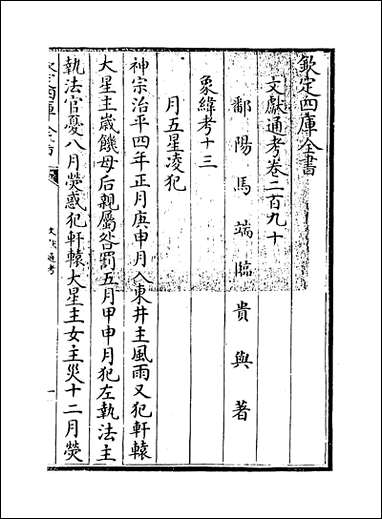 欽定四庫全書
文獻通考卷二百九十
鄱陽馬端臨貴與著
象緯考十三
月五星凌犯
神宗治平四年正月庚申月入東井主風雨又犯軒轅
大星主歲饑母后親屬咎罰五月甲申月犯左執法主
執法官憂八月熒惑犯軒轅大星主女主災十二月熒
欽定四庫全書
文獻通考
一